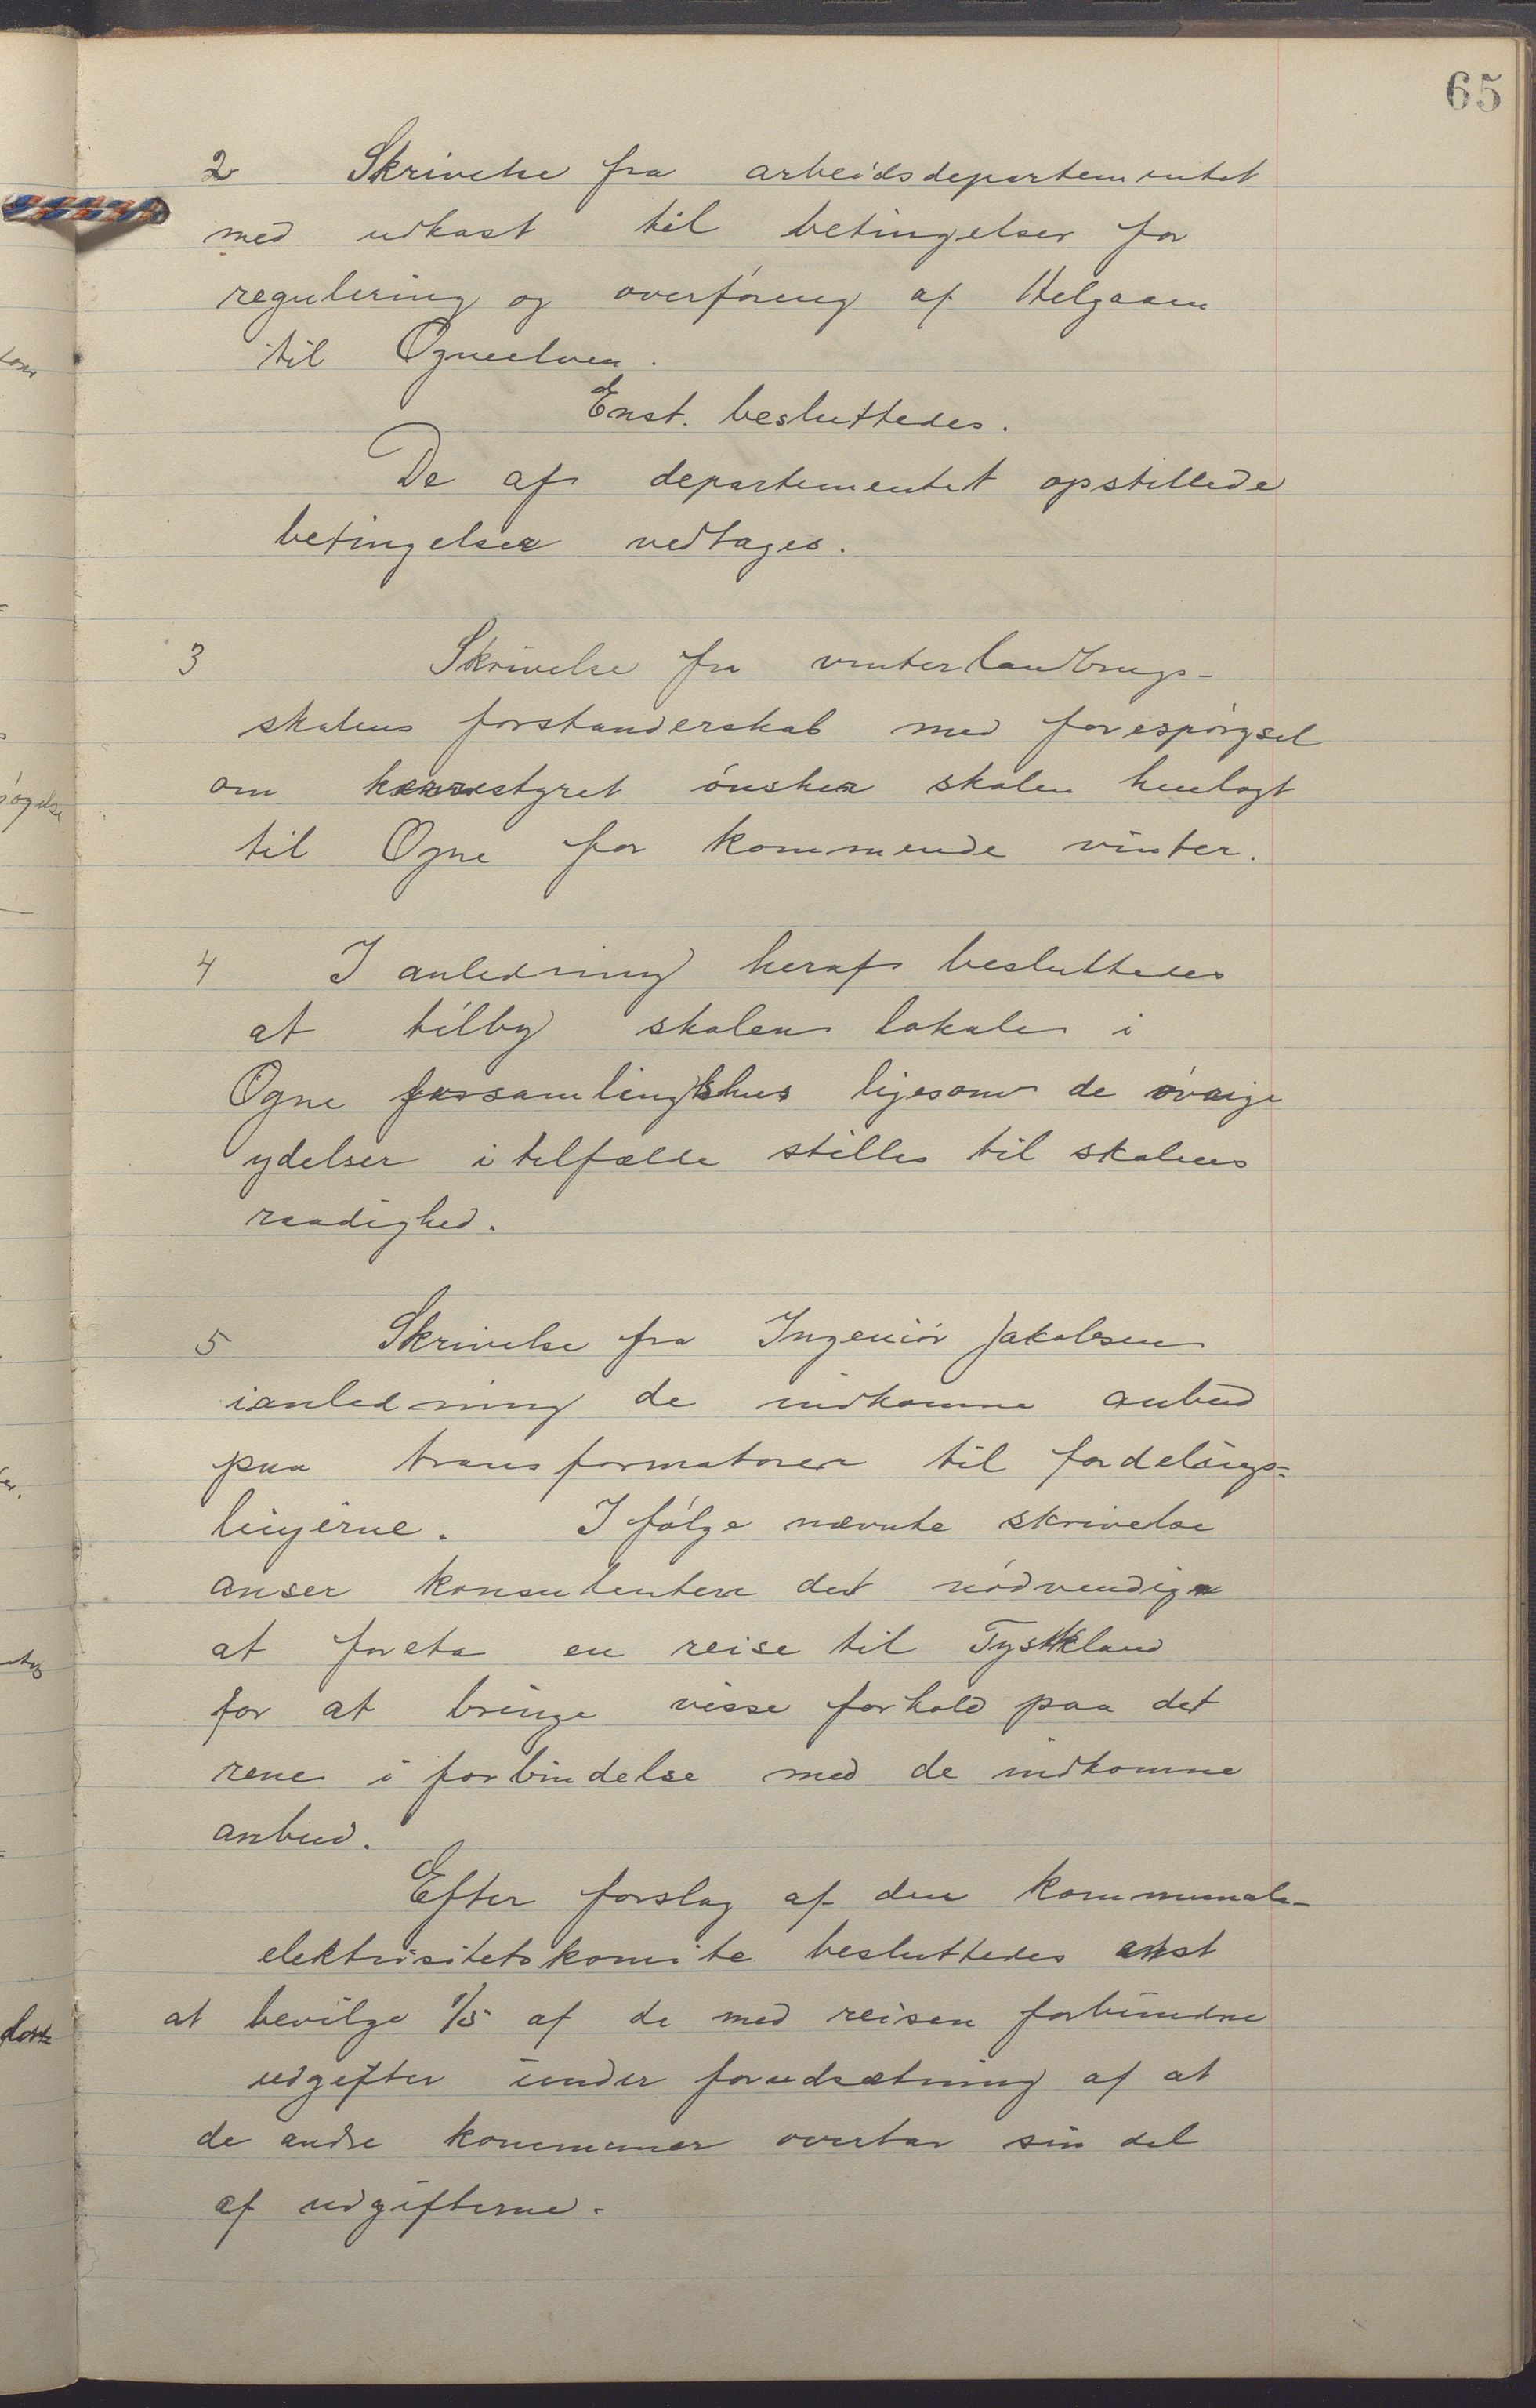 65
2 Skrivelse fra arbeidsdepartementet
med udkast til betingelser for
regulering og overføreng af Helgaaen
til Ogneelven.
Enst. besluttedes.
De af departementet opstillede
betingelser vedtages.
3 Skrivelse fra vinterlandbrugs-
skolens forstanderskab med forespørgsel
om herredstyret ønsker skolen henlagt
til Ogne for kommende vinter.
4 I anledning heraf besluttedes
at tilby skolen lokale i
Ogne forsamlingshus ligesom de øvrige
ydelser i tilfælde stilles til skolens
raadighed.
5 Skrivelse fra Ingeniør Jakobsen
i anledning de indkomne anbud
paa transformatorer til fordelings-
linjerne. I følge nævnte skrivelse
anser konsulenten det nødvendig
at foreta en reise til Tyskland
for at bringe visse forhold paa det
rene i forbindelse med de indkomne
anbud.
Efter forslag af den kommunale
elektrisitetskomite besluttedes enst
at bevilge 1/5 af de med reisen forbundne
udgifter under forudsætning af at
de andre kommuner overtar sin del
af udgifterne.